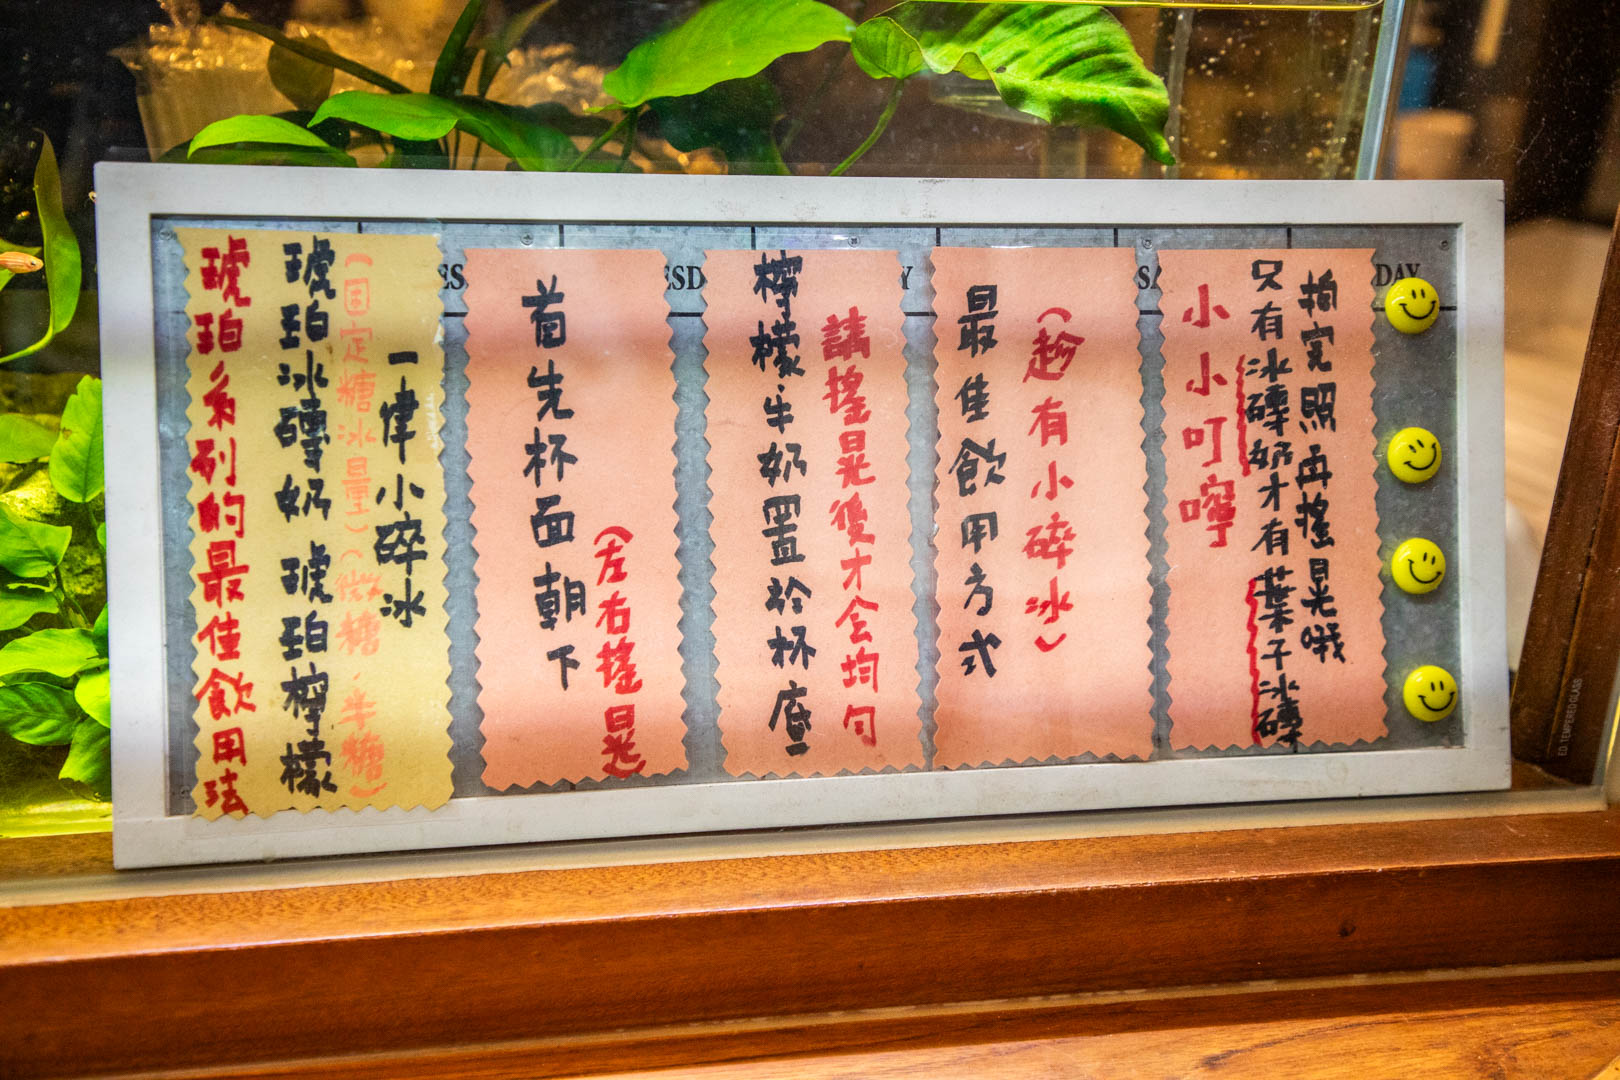 琥珀系列的最佳飲用法
琥珀冰磚奶 琥珀檸檬
(固定糖冰量)(微糖.半糖)
一律小碎冰
首先杯面朝下
(左右搖晃)
檸檬.牛奶置於杯底
請搖晃後才会均匀
最佳飲用方式
(趁有小碎冰)
小小叮嚀
只有冰磚奶才有葉子冰磚
拍完照再搖晃哦
ES
ESD
Y
SA
DAY
ED TEMPERED GLASS